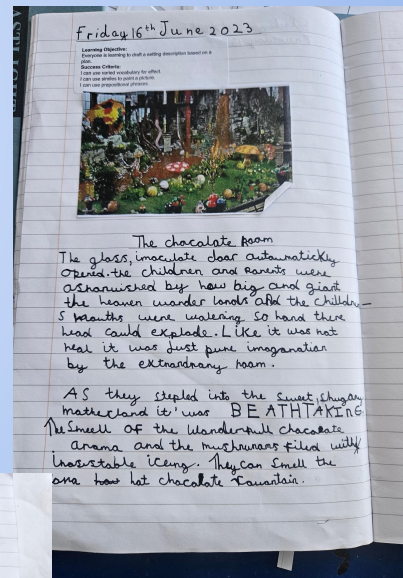 Friday 16th June 2023
Learning Objective:
Everyone is learning to draft a setting description based on a
plan.
Success Criteria:
I can use varied vocabulary for effect.
I can use similes to paint a picture.
I can use prepositional phrases.
The chacolate Room
The glass, imoculate door autowmatickly
opened. the children and Parents were
ashonuished by how big and giant
the heaven wander lands and the childre-
s mouths were watering so hard there
head could explode. Like it was not
real it was Just pure imaganation
by the extraordnary room.
AS they stepled into the sweet, shugary
motherland it' was BEATHTAKING
The Smeell of the Wonderfull chocolate
aroma and the mushrunams filed with
inosistable iceing. They can smell the
hot chocolate